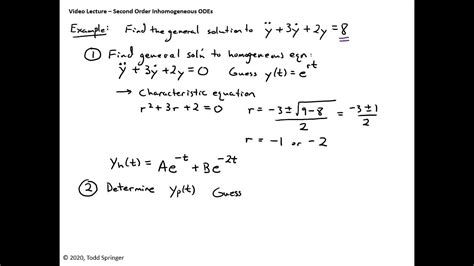 Video Lecture – Second Order Inhomogeneous ODEs
Example: Find the general solution to ÿ + 3ẏ + 2y = 8
① Find general sol'n to homogeneous eqn:
ÿ + 3ẏ + 2y = 0 Guess y(t) = e^{rt}
→ Characteristic equation
r² + 3r + 2 = 0 r = (-3 ± √(9-8))/2 = (-3 ± 1)/2
r = -1 or -2
y_h(t) = Ae^{-t} + Be^{-2t}
② Determine y_p(t) Guess
© 2020, Todd Springer